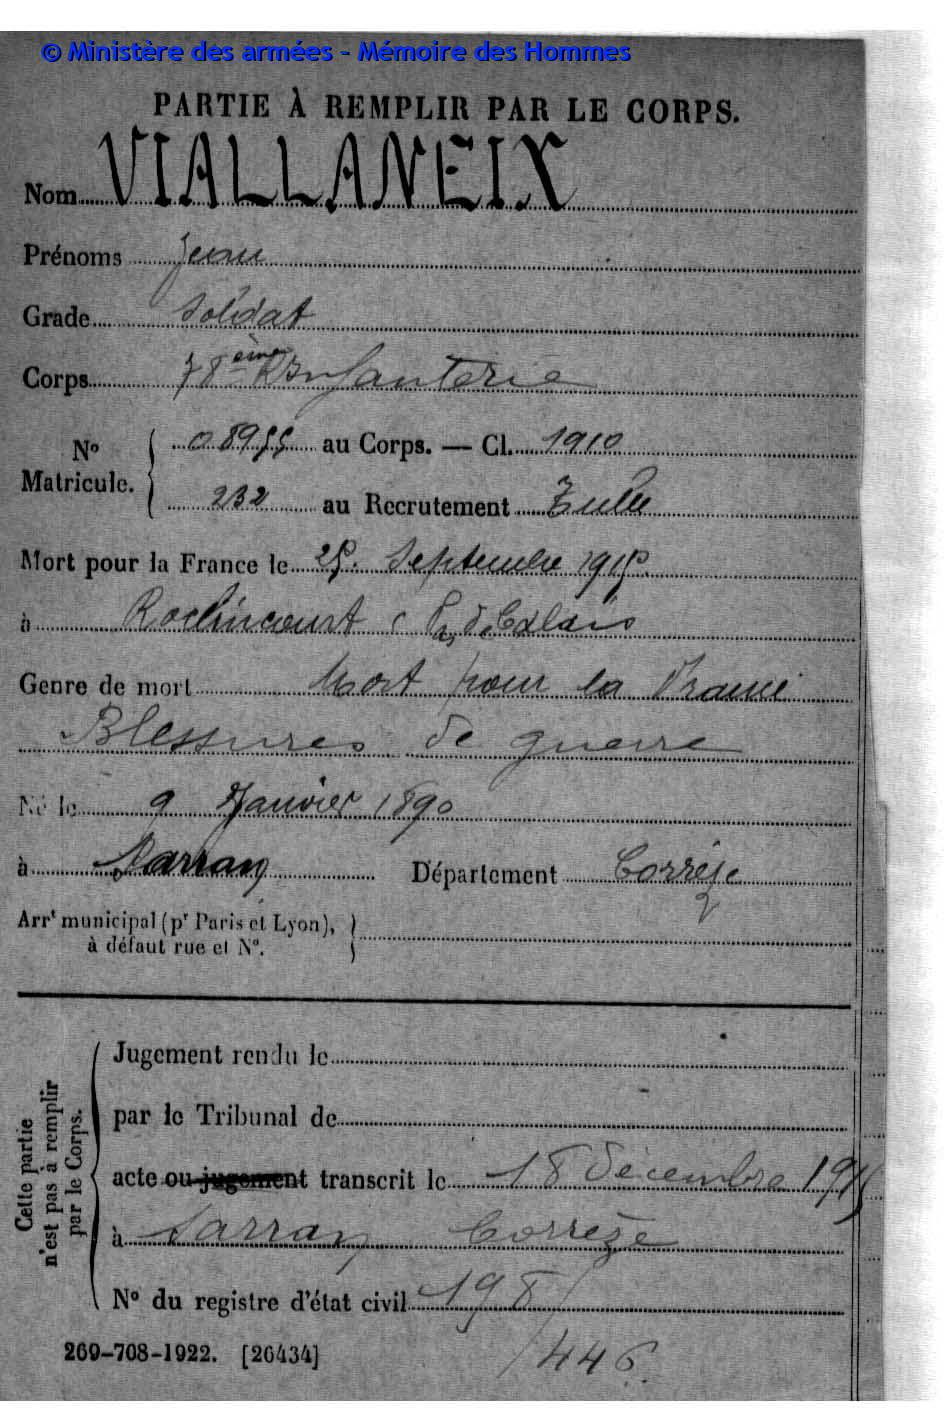 © Ministère des armées - Mémoire des Hommes
PARTIE À REMPLIR PAR LE CORPS.
Nom VIALLANEIX
Prénoms Jean
Grade Soldat
Corps 78ème R Infanterie
Nº Matricule. 08955 au Corps. — Cl. 1910
232 au Recrutement Tulle
Mort pour la France le 25. Septembre 1915.
à Roclincourt ( Pas de Calais
Genre de mort Mort pour la France
Blessures de guerre
Né le 9 Janvier 1890
à Sarran Département Corrèze
Arrt municipal (pr Paris et Lyon),
à défaut rue et Nº.
Cette partie
n'est pas à remplir
par le Corps.
Jugement rendu le
par le Tribunal de
acte ou jugement transcrit le 18 décembre 1915
à Sarran Corrèze
Nº du registre d'état civil 198/
269-708-1922. [26434] /446.